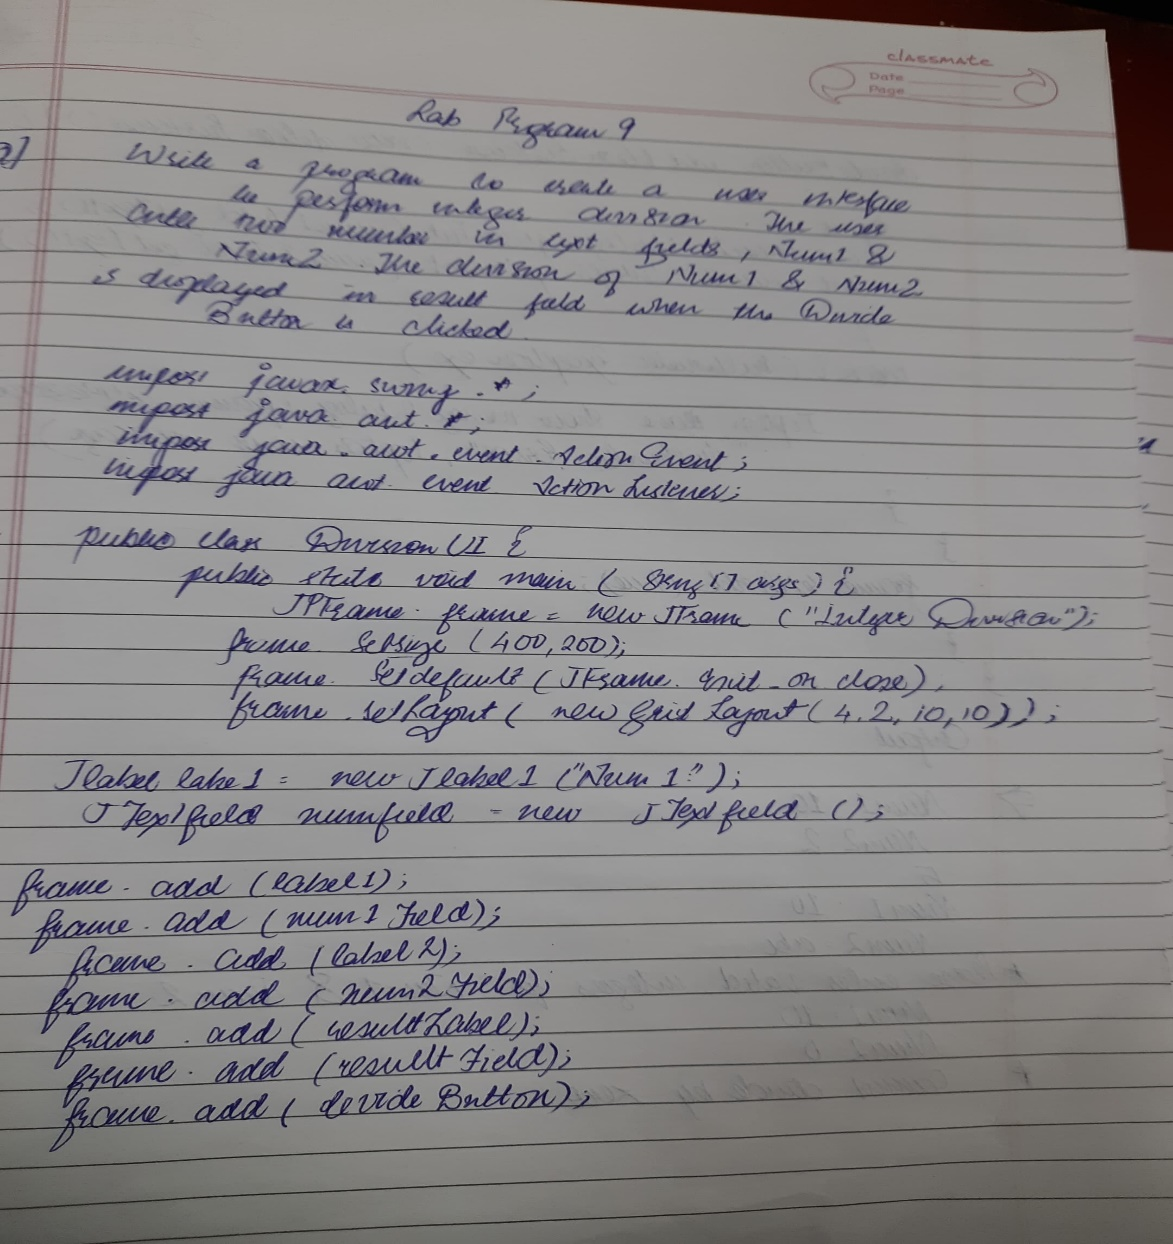 classmate
Date
Page
Lab Program 9
Write a program to create a user interface
to perform integer division. The user
enter two number in text fields, Num1 &
Num2. The division of Num1 & Num2
is displayed in result field when the Divide
Button is clicked.
import javax. swing. *;
import java. awt. *;
import java. awt. event. Action Event;
import java awt. event Action Listener;
public class Division UI {
public static void main ( String [] args) {
JPFrame. frame = new JFrame ("Integer Division");
frame. SetSize (400,200);
frame. Setdefault (JFrame. Exit_on close),
frame. setLayout ( new Grid Layout (4,2,10,10));
Jlabel labe1 = new Jlabel1 ("Num1:");
JTextfield numfield = new JTextfield ();
frame. add (label1);
frame. add (num1 Field);
frame. add (label2);
frame. add (num2 Field);
frame. add (resultLabel);
frame. add (result Field);
frame. add ( devide Button);